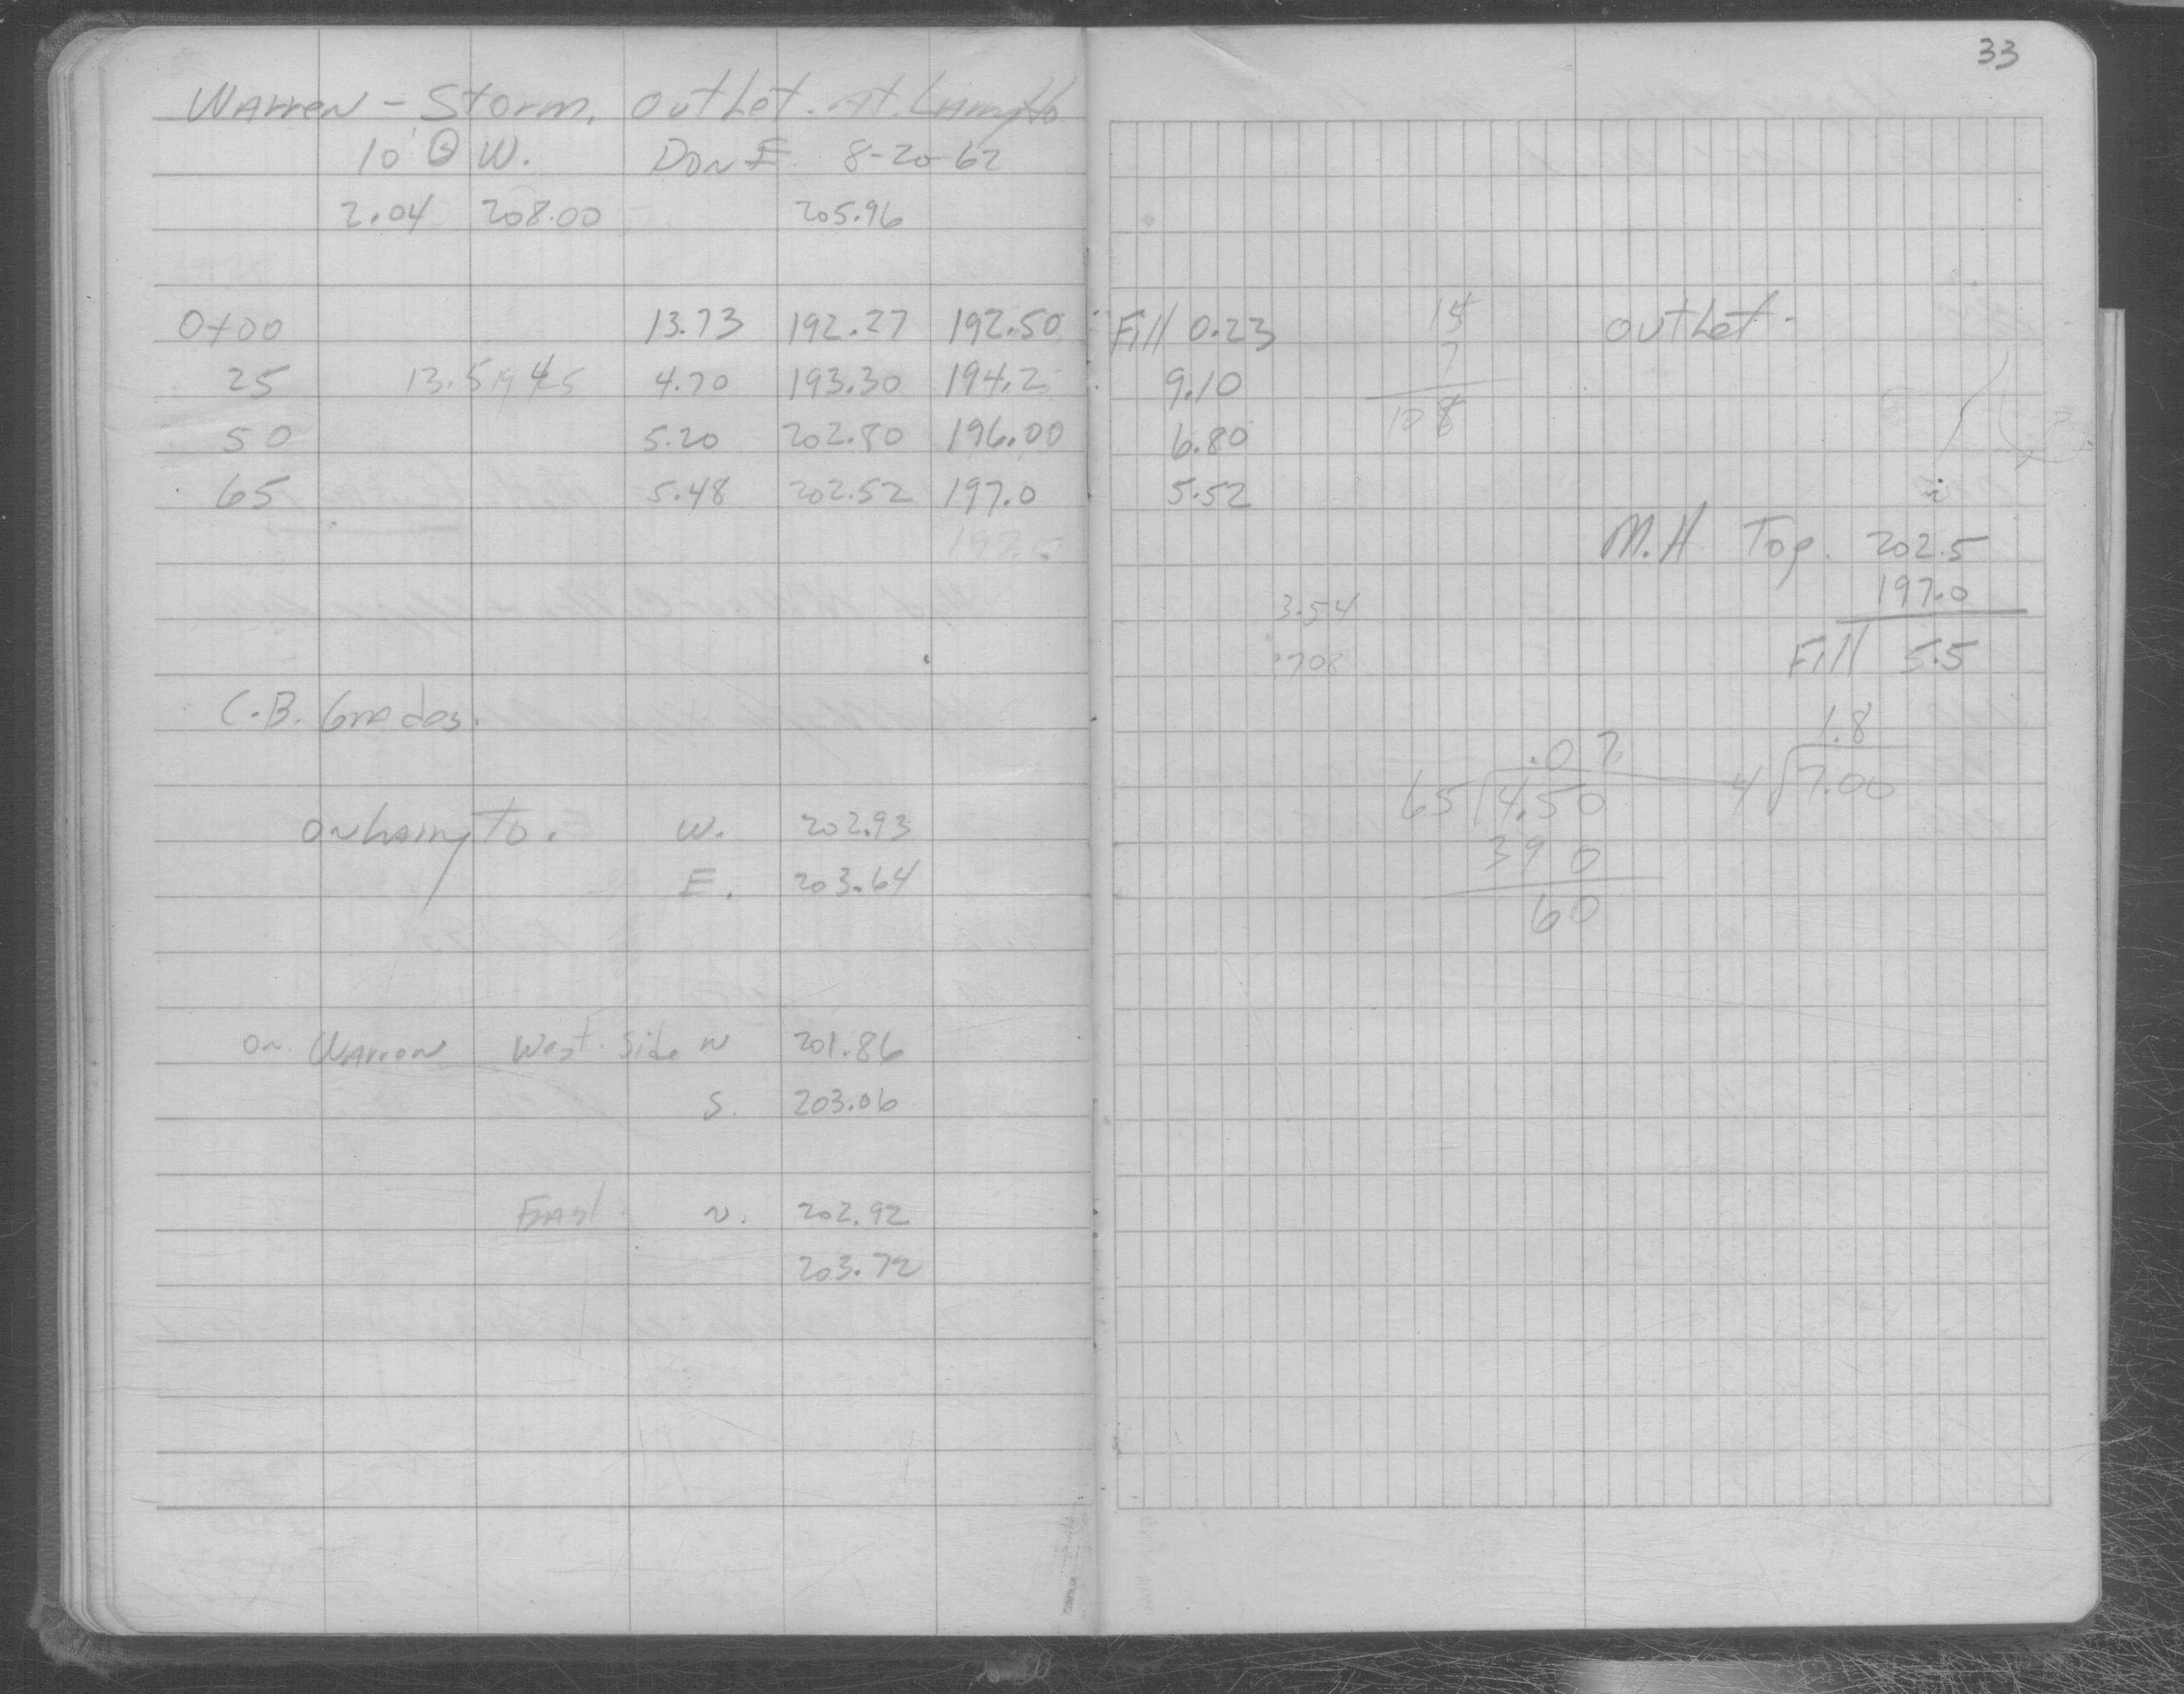 33
Warren - Storm. Outlet. At. Lamyto
10' W. Don E. 8-20-62
2.04 208.00 205.96
0+00 13.73 192.27 192.50 Fill 0.23 Outlet-
25 13.5 4.70 193.30 194.2 9.10
50 5.20 202.80 196.00 6.80
65 5.48 202.52 197.0 5.52
15
7
108
M.H Top. 202.5
197.0
Fill 5.5
3.54
.708
C.B. Grades.
On Lamyto. W. 202.93
E. 203.64
On. Warren West. Side N 201.86
S. 203.06
East N. 202.92
203.72
.07
65 4.50
390
60
1.8
4 7.00